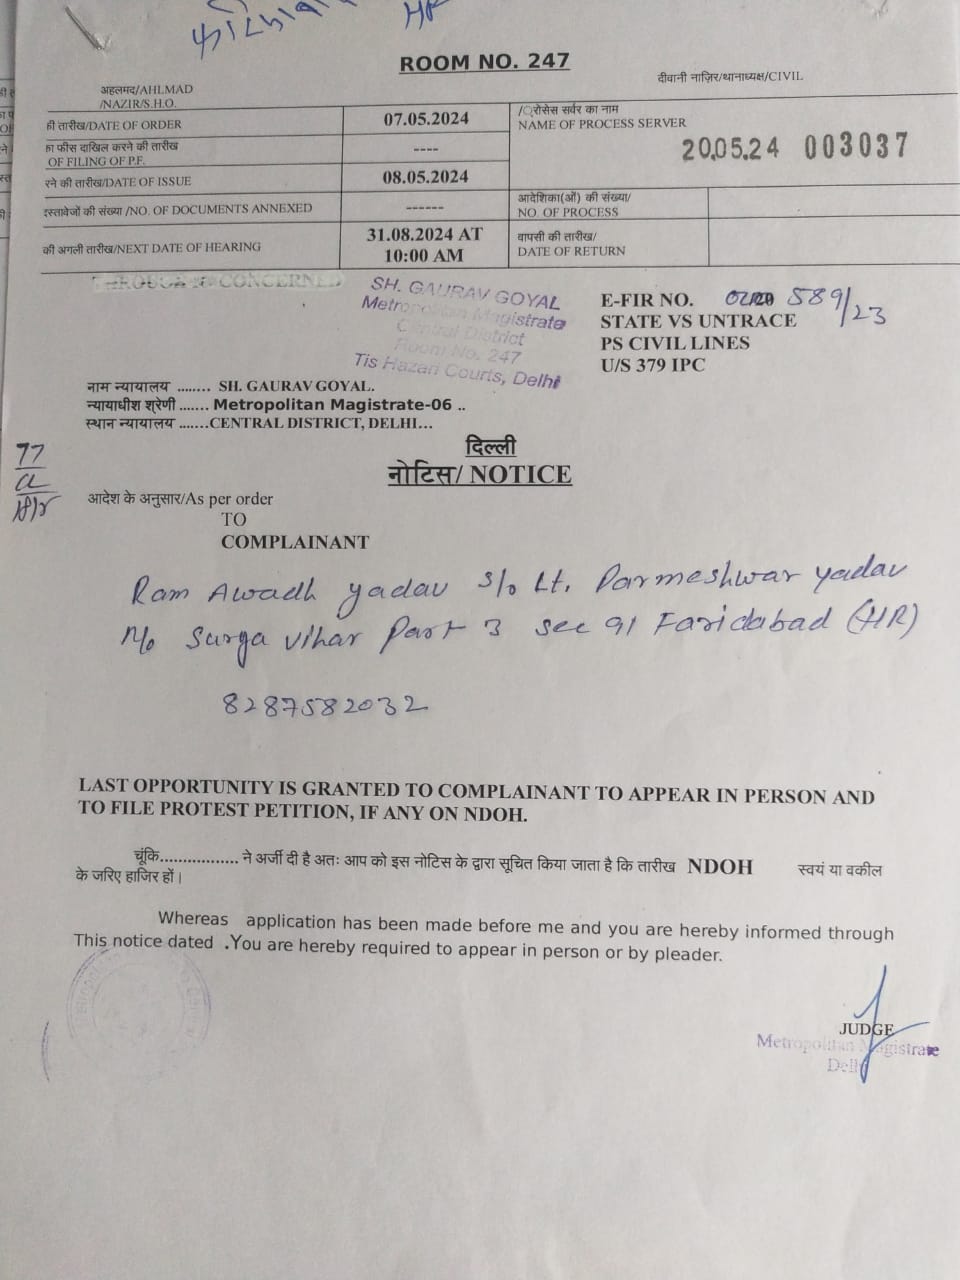 फरीदाबाद
HR
ROOM NO. 247
अहलमद/AHLMAD
/NAZIR/S.H.O.
दीवानी नाज़िर/थानाध्यक्ष/CIVIL
ही तारीख/DATE OF ORDER
07.05.2024
/प्रोसेस सर्वर का नाम
NAME OF PROCESS SERVER
20.05.24 003037
का फीस दाखिल करने की तारीख
OF FILING OF P.F.
----
रने की तारीख/DATE OF ISSUE
08.05.2024
दस्तावेजों की संख्या /NO. OF DOCUMENTS ANNEXED
------
आदेशिका(ओं) की संख्या/
NO. OF PROCESS
की अगली तारीख/NEXT DATE OF HEARING
31.08.2024 AT
10:00 AM
वापसी की तारीख/
DATE OF RETURN
CONCERNED
SH. GAURAV GOYAL
Metropolitan Magistrate
Central District
Room No. 247
Tis Hazari Courts, Delhi
E-FIR NO. 589/23
STATE VS UNTRACE
PS CIVIL LINES
U/S 379 IPC
नाम न्यायालय ........ SH. GAURAV GOYAL.
न्यायाधीश श्रेणी ....... Metropolitan Magistrate-06 ..
स्थान न्यायालय .......CENTRAL DISTRICT, DELHI...
दिल्ली
नोटिस/ NOTICE
77
आदेश के अनुसार/As per order
TO
COMPLAINANT
Ram Awadh yadav S/o Lt. Parmeshwar yadav
R/o Surya Vihar Part 3 Sec 91 Faridabad (HR)
8287582032
LAST OPPORTUNITY IS GRANTED TO COMPLAINANT TO APPEAR IN PERSON AND
TO FILE PROTEST PETITION, IF ANY ON NDOH.
चूंकि................. ने अर्जी दी है अतः आप को इस नोटिस के द्वारा सूचित किया जाता है कि तारीख NDOH स्वयं या वकील
के जरिए हाजिर हों।
Whereas application has been made before me and you are hereby informed through
This notice dated .You are hereby required to appear in person or by pleader.
JUDGE
Metropolitan Magistrate
Delhi